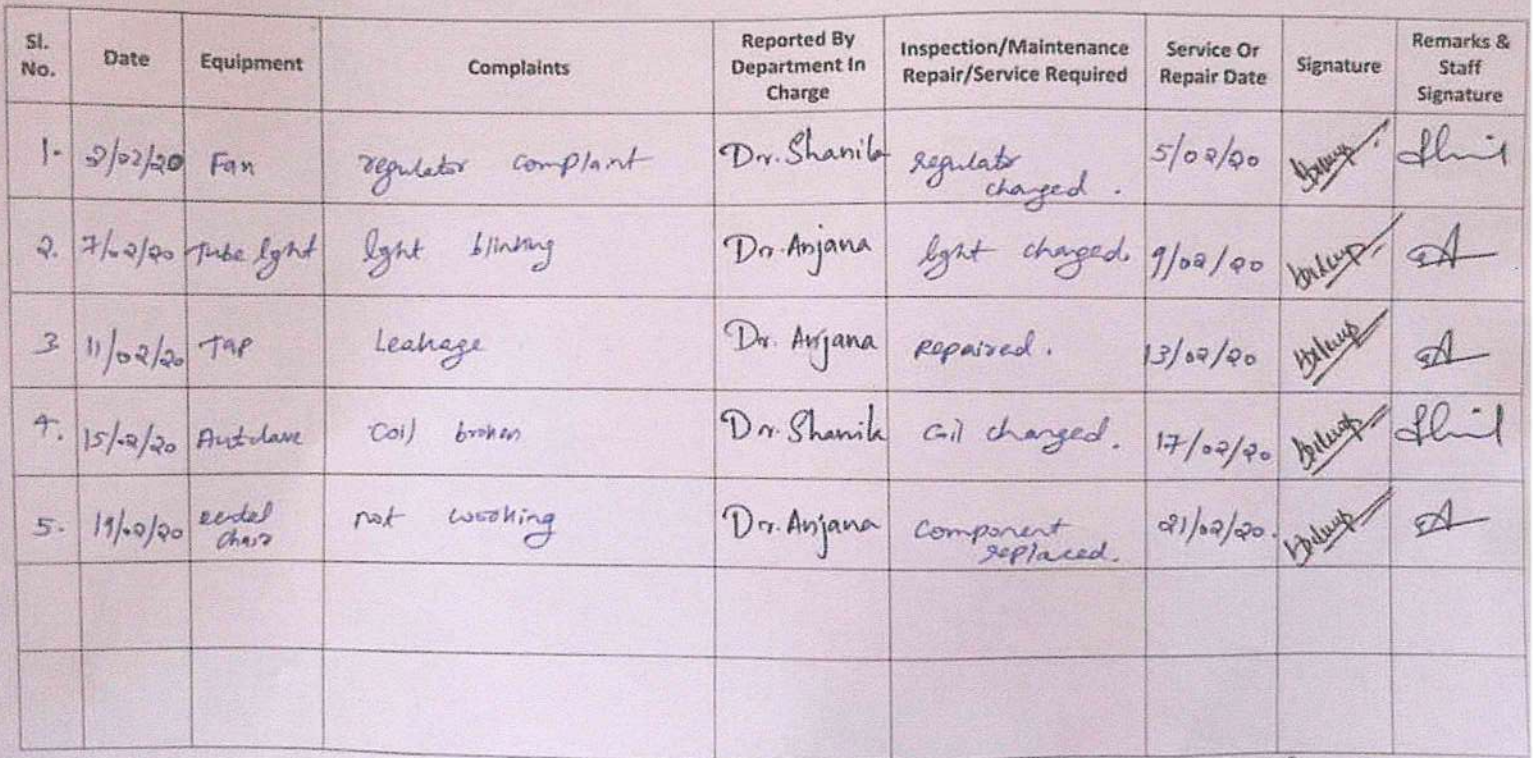 Sl. No. Date Equipment Complaints Reported By Department In Charge Inspection/Maintenance Repair/Service Required Service Or Repair Date Signature Remarks & Staff Signature
1. 2/02/20 Fan regulator complaint Dr. Shanila regulator changed. 5/02/20
2. 7/02/20 Tube lght lght blinking Dr. Anjana lght changed. 9/02/20
3 11/02/20 Tap Leakage Dr. Anjana Repaired. 13/02/20
4. 15/02/20 Autclave Coil broken Dr. Shanila Coil changed. 17/02/20
5. 19/02/20 chair not working Dr. Anjana Component replaced. 21/02/20.